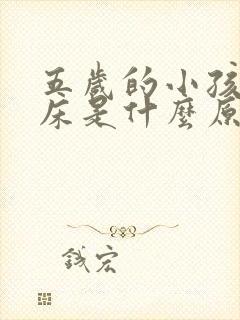 五歲的小孩
床是什麼原
錢宏